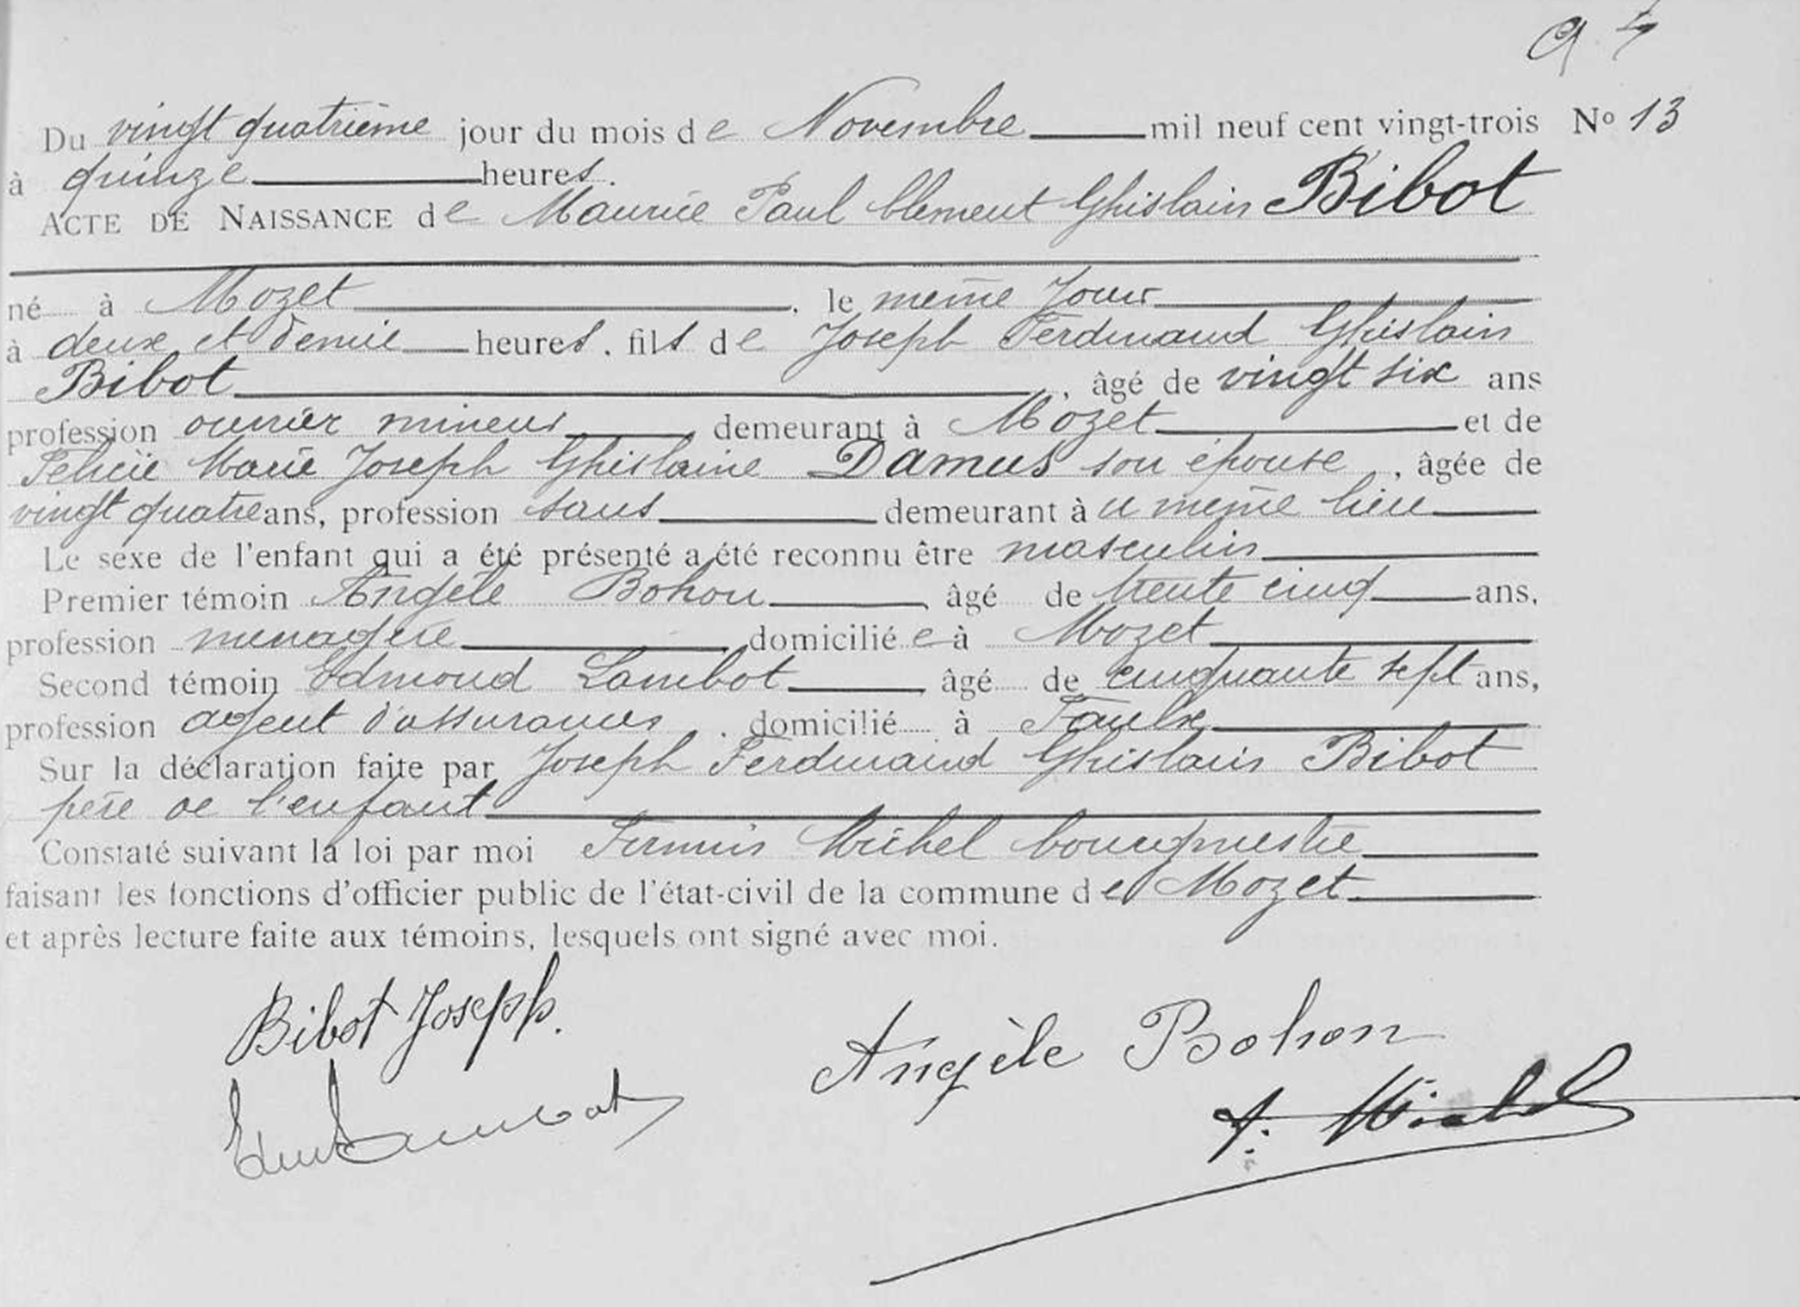 Du vingt quatrième jour du mois de Novembre mil neuf cent vingt-trois No 13
à quinze heures.
ACTE DE NAISSANCE de Maurice Paul Clement Ghislain Bibot
né à Mozet, le meme Jour
à deux et demie heures, fils de Joseph Ferdinand Ghislain
Bibot, âgé de vingt six ans
profession ouvrier mineur demeurant à Mozet et de
Felicie Marie Joseph Ghislaine Damus son épouse, âgée de
vingt quatre ans, profession sans demeurant à u meme lieu
Le sexe de l'enfant qui a été présenté a été reconnu être masculin
Premier témoin Angèle Bohon âgé de trente cinq ans,
profession menagère, domiciliée à Mozet
Second témoin Edmond Lambot âgé de cinquante sept ans,
profession agent d'assurances, domicilié à Faulx
Sur la déclaration faite par Joseph Ferdinand Ghislain Bibot
père de l'enfant
Constaté suivant la loi par moi Firmin Michel bourgmestre
faisant les fonctions d'officier public de l'état-civil de la commune de Mozet
et après lecture faite aux témoins, lesquels ont signé avec moi.
Bibot Joseph.
Angèle Bohon
Edm Lambot
F. Michel